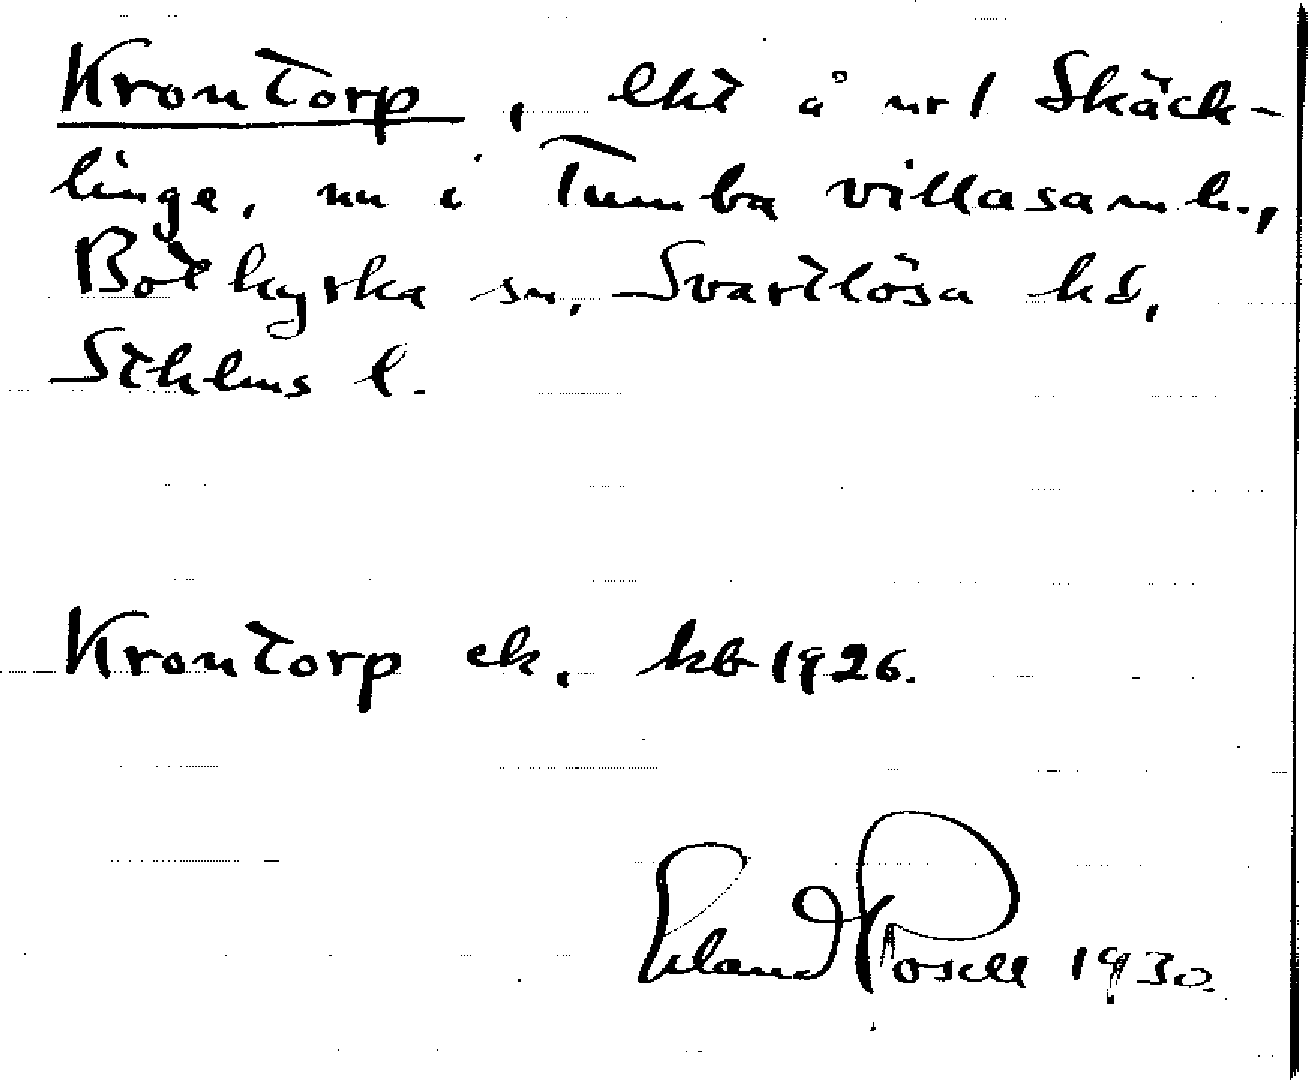 Krontorp, lht å nr 1 Skäck-
linge, nu i Tumba villasamh.,
Botkyrka sn, Svartlösa hd,
Sthlms l.
Krontorp ek. kb 1926.
Erland Rosell 1930.